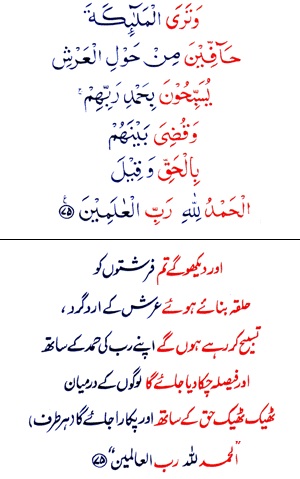 وَتَرَى الْمَلٰٓئِكَةَ
حَآفِّيْنَ مِنْ حَوْلِ الْعَرْشِ
يُسَبِّحُوْنَ بِحَمْدِ رَبِّهِمْ ۚ
وَقُضِىَ بَيْنَهُمْ
بِالْحَقِّ وَ قِيْلَ
الْحَمْدُ لِلّٰهِ رَبِّ الْعٰلَمِيْنَ ﴿۷۵﴾
اور دیکھو گے تم فرشتوں کو
حلقہ بنائے ہوئے عرش کے ارد گرد ،
تسبیح کر رہے ہوں گے اپنے رب کی حمد کے ساتھ
اور فیصلہ چکا دیا جائے گا لوگوں کے درمیان
ٹھیک ٹھیک حق کے ساتھ اور پکارا جائے گا (ہر طرف)
"الحمد للہ رب العالمین" ﴿۷۵﴾